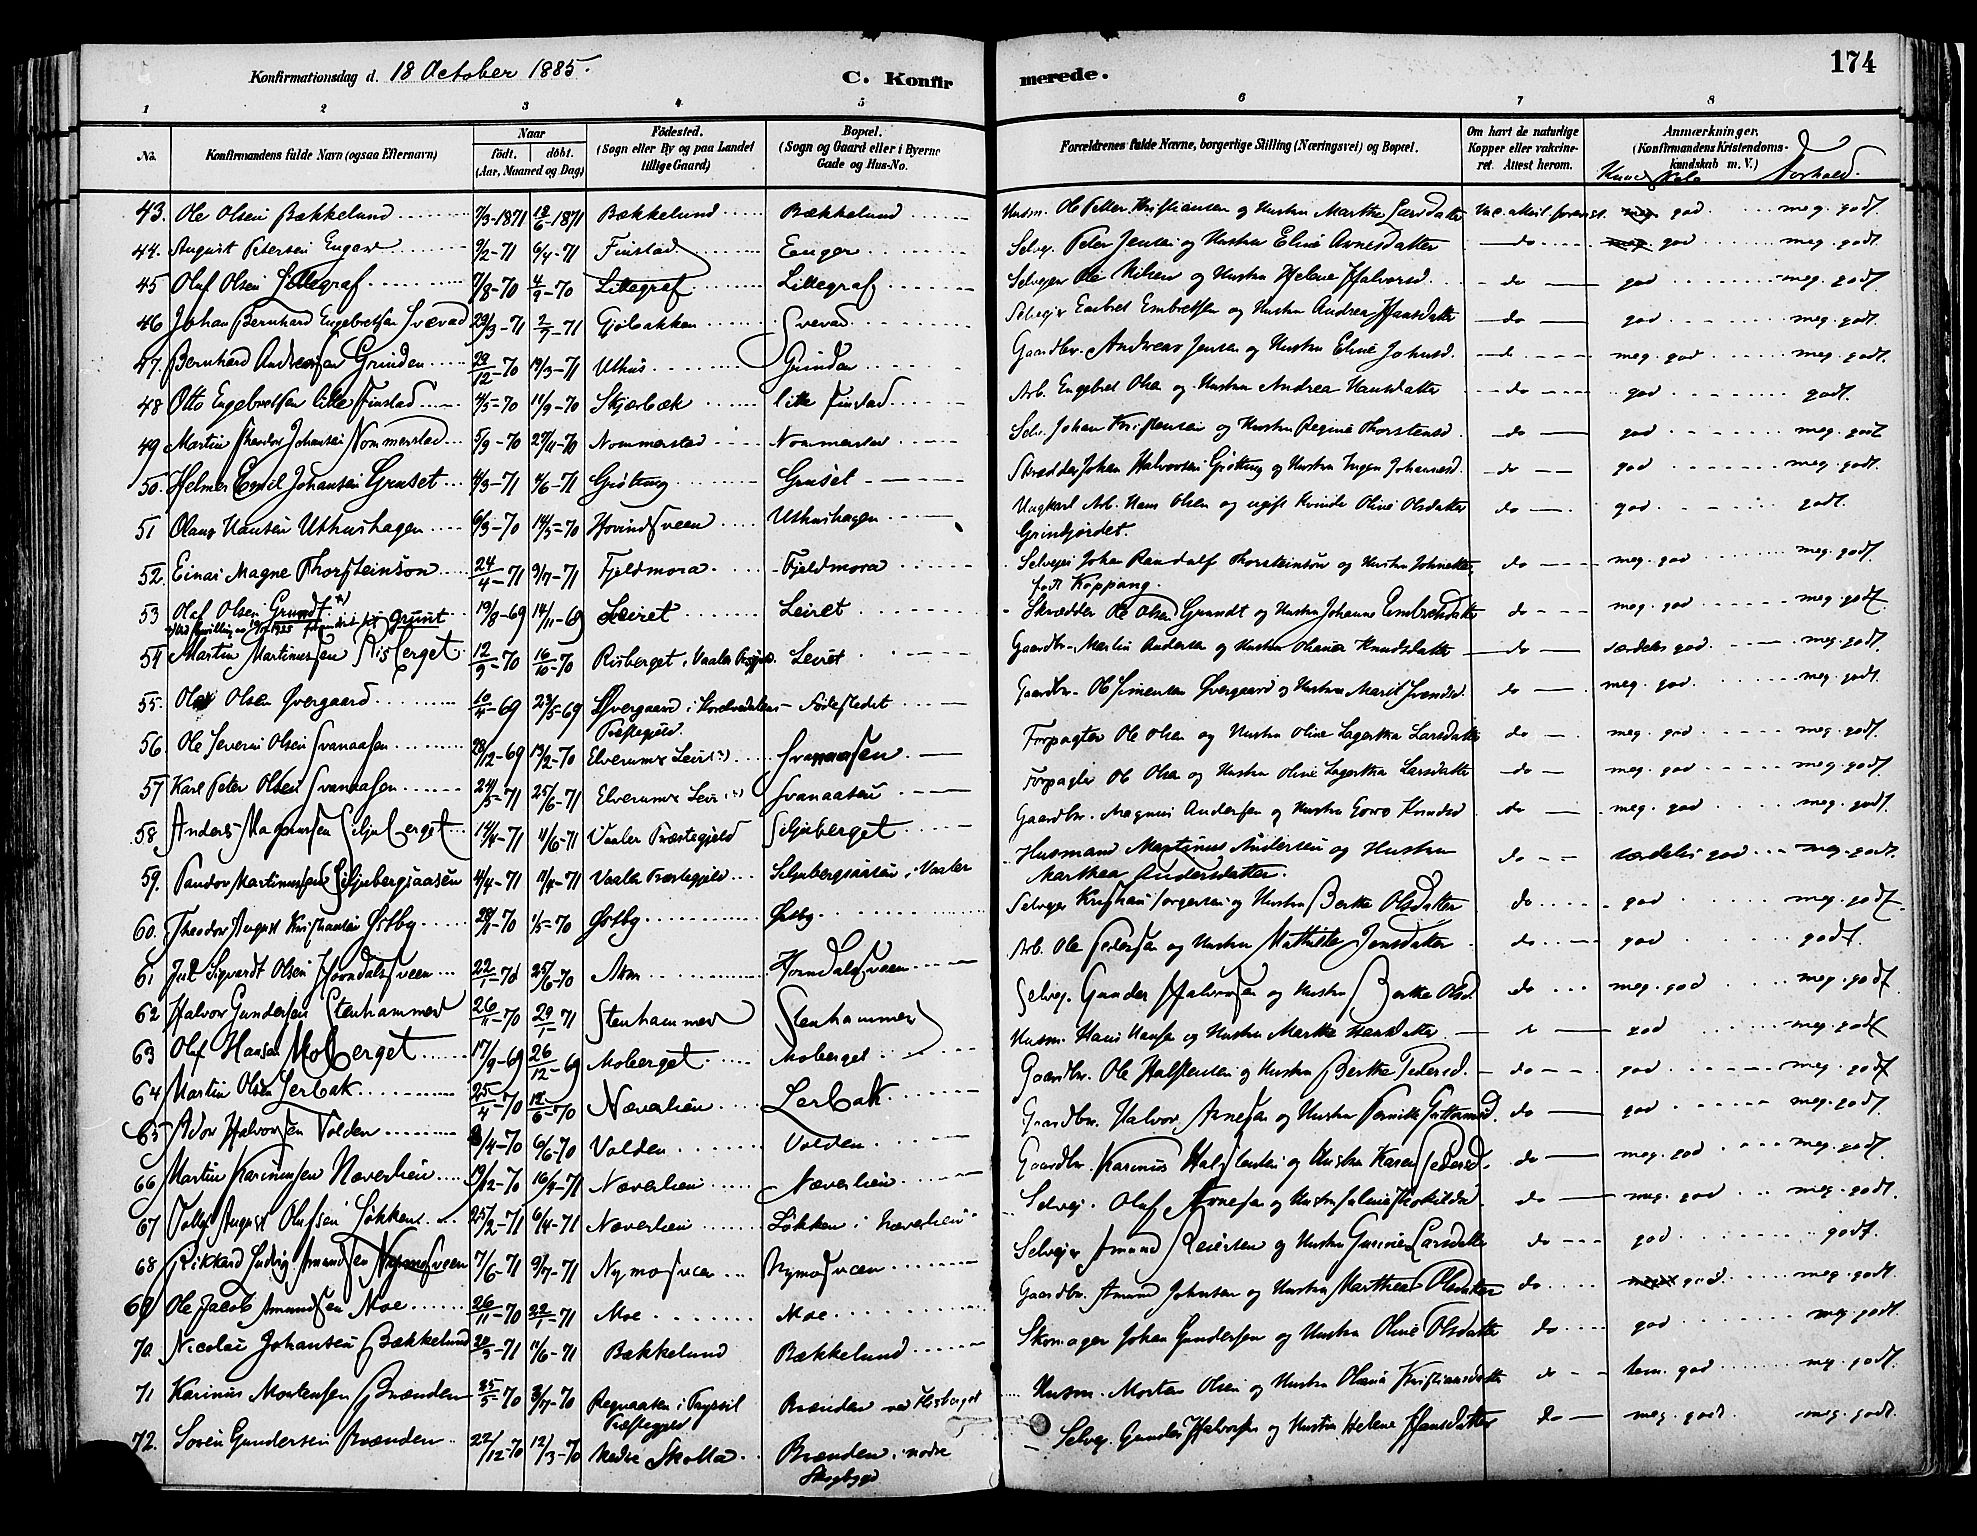 Konfirmationsdag d. 18 October 1885.
C. Konfir
merede.
174
1 2 3 4 5 6 7 8
No.
Konfirmandens fulde Navn (ogsaa Efternavn)
Naar
født, døbt.
(Aar, Maaned og Dag)
Fødested.
(Sogn eller By og paa Landet
tillige Gaard)
Bopæl.
(Sogn og Gaard eller i Byerne
Gade og Hus-No.
Forældrenes fulde Navne, borgerlige Stilling (Næringsvei) og Bopæl.
Om havt de naturlige
Kopper eller vakcine-
ret. Attest herom.
Anmærkninger.
(Konfirmandens Kristendoms-
kundskab m. V.)
Forhold.
43. Ole Olsen Bækkelund 7/3-1871 18/6-1871 Bækkelund Bækkelund Husm. Ole Petter Kristiansen og Hustru Marthe Larsdatter god meg. godt.
44. August Petersen Enger 9/2-71 6/4-71 Finstad Enger Selvej. Peter Jensen og Hustru Eline Arnesdatter do god meg. godt
45 Oluf Olsen Lillegraf 7/8-70 4/9-70 Lillegraf Lillegraf Selvejer Ole Nilsen og Hustru Helene Halvorsd. do god meg. godt.
46 Johan Bernhard Engebretsen Svevad 29/3-71 2/7-71 Gjøbakken Svevad Selvejer Embret Embretsen og Hustru Andrea Hansdatter do god meg. godt.
47. Bernhard Andreassen Grinden 29/12-70 19/3-71 Uthus Grinden Gaardbr. Andreas Jensen og Hustru Eline Johnsd. do meg. god meg. godt.
48 Otto Engebretsen lille Finstad 4/5-70 11/9-70 Skjærbæk lille Finstad Arb. Engebret Olsen og Hustru Andrea Hansdatter do god godt.
49 Martin Theodor Johansen Nommerstad 5/9-70 27/11-70 Nommerstad Nommerstad Selv. Johan Kristensen og Hustru Regine Thorstensd. do god meg. godt
50. Helmer Emil Johansen Gruset 4/3-71 4/6-71 Grøtting Gruset Skrædder Johan Halvorsen Grøtting og Hustru Inger Johannesd. do god meg. godt.
51 Olaus Hansen Uthushagen 6/3-70 14/5-70 Hovindsveen Uthushagen Ungkarl Arb. Hans Olsen og ugift Kvinde Oline Olsdatter do god godt.
Grindjordet.
52. Einar Magne Thorsteinson 24/4-71 9/7-71 Fjeldmora Fjeldmora Selvejer Johan Randolf Thorsteinson og Hustru Johnette, do meg. god meg. godt.
født Koppang.
53 Olaf Olsen Grundt 19/8-69 14/11-69 Leiret Leiret Skrædder Ole Olsen Grundt og Hustru Johanne Embretsdatter do meg. god meg. godt.
Grunt
54 Martin Martinussen Risberget 12/9-70 16/10-70 Risberget i Vaaler Leiret Gaardbr. Martin Andersen og Hustru Oliane Knudsdatter do særdeles god meg. godt.
55. Ole Olsen Øvergaard 10/4-69 23/5-69 Øvergaard i Fødestedet Gaardbr. Ole Simensen Øvergaard og Hustru Marit do meg. god meg. godt
Præstegjeld.
56. Ole Severin Olsen Svanaasen 28/12-69 13/2-70 Elverums Leir Svanaasen Forpagter Ole Olsen og Hustru Oline Lagertha Larsdatter do meg. god meg. godt.
57 Karl Peter Olsen Svanaasen 24/5-71 25/6-71 Elverums Leir Svanaasen Forpagter Ole Olsen og Hustru Oline Lagertha Larsdatter do meg. god meg. godt.
58. Anders Magnussen Siljuberget 14/4-71 4/6-71 Vaaler Præstegjeld Siljuberget Gaardbr. Magnus Andersen og Hustru Goro Knudsd do meg. god meg. godt.
59. Pauder Martinussen Siljubergsaasen 4/4-71 Vaaler Præstegjeld Siljubergsaasen, Vaaler Husmand Martinus Andersen og Hustru do særdeles god meg. godt.
Marthea Andersdatter.
60. Theodor August Kristiansen Østby 1/5-70 Østby Østby Selvejer Kristian Jørgensen og Hustru Berthe Olsdatter do god meg. godt.
61 Jul Sigvardt Olsen Horndalssveen 22/1-70 25/6-70 Horndalssveen Arb. Ole Pedersen og Hustru Mathilde Jonsdatter do god godt.
62 Halvor Gundersen Stenhammer 26/11-70 29/1-71 Stenhammer Stenhammer Selvej. Gunder Halvorsen og Hustru Berthe Olsd do meg. god meg. godt
63 Olaf Hansen Moberget 17/9-69 26/12-69 Moberget Moberget Husm. Hans Hansen og Hustru Marthe Hansdatter god meg. godt
64 Martin Olsen Lerbak 25/4-70 12/6-70 Næverlien Lerbak Gaardbr. Ole Halstensen og Hustru Berthe Pedersd. do god meg. godt
65 Ador Halvorsen Volden 3/4-70 6/6-70 Volden Volden Gaardbr. Halvor Arnesen og Hustru Pernille Guttormsd. do god meg. godt.
66 Martin Karinussen Næverlien 19/12-70 16/4-71 Næverlien Næverlien Gaardbr. Karinus Halstensen og Hustru Karen Pedersd. do meg. god meg. godt.
67 August Olufsen Løkken 25/2-71 6/4-71 Næverlien Løkken i Næverlien Selvej. Oluf Arnesen og Hustru do meg. god meg. godt.
68 Rikkard Ludvig Amundsen Nymosveen 7/6-71 9/7-71 Nymosveen Nymosveen Selvejer Amund Reiersen og Hustru Gurine Larsdatter do god godt.
69 Ole Jacob Amundsen Moe 26/11-70 22/1-71 Moe Moe Gaardbr. Amund Johnsen og Hustru Marthea Olsdatter do god meg. godt.
70. Nicolai Johansen Bækkelund 20/3-71 11/6-71 Bækkelund Bækkelund Skomager Johan Gundersen og Hustru Oline Olsdatter do god meg. godt.
71 Karinus Mortensen Brænden 25/5-70 3/7-70 Regnaasen i Trysil Brænden ved Risberget Husm. Morten Olsen og Hustru Oliana Kristiansdatter do tem. god meg. godt.
Præstegjeld
72. Søren Gundersen Brænden 22/12-70 12/3-70 Nedre Skolla Brænden i nodre Selvej. Gunder Halvorsen og Hustru Helene Hansdatter do meg. godt meg. godt.
Skogbygd